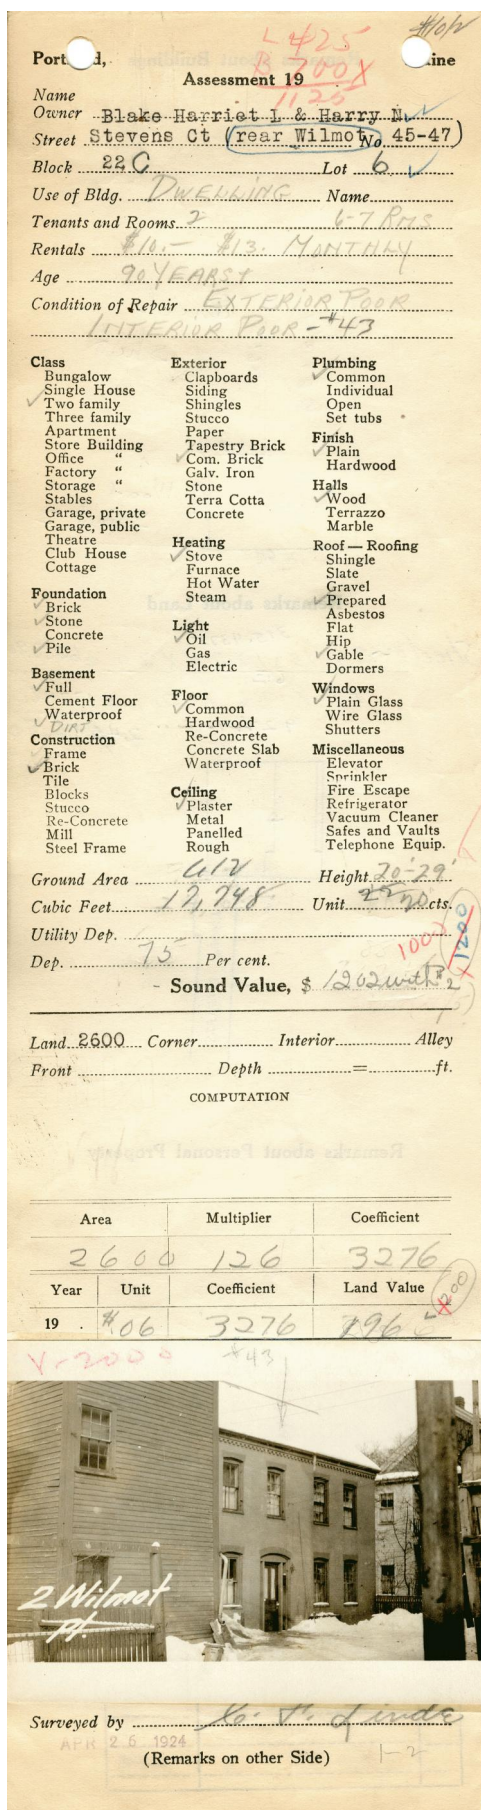 L 425
B 700 X
1125
Portland, Maine
Assessment 19
Name
Owner Blake Harriet L & Harry N
Street Stevens Ct (rear Wilmot No. 45-47)
Block 22C Lot 6
Use of Bldg. DWELLING Name
Tenants and Rooms 2 6-7 RMS
Rentals $10.- $13. MONTHLY
Age 90 YEARS+
Condition of Repair EXTERIOR POOR
INTERIOR POOR - #43
Class
Bungalow
Single House
Two family
Three family
Apartment
Store Building
Office "
Factory "
Storage "
Stables
Garage, private
Garage, public
Theatre
Club House
Cottage
Foundation
Brick
Stone
Concrete
Pile
Basement
Full
Cement Floor
Waterproof
DIRT
Construction
Frame
Brick
Tile
Blocks
Stucco
Re-Concrete
Mill
Steel Frame
Exterior
Clapboards
Siding
Shingles
Stucco
Paper
Tapestry Brick
Com. Brick
Galv. Iron
Stone
Terra Cotta
Concrete
Heating
Stove
Furnace
Hot Water
Steam
Light
Oil
Gas
Electric
Floor
Common
Hardwood
Re-Concrete
Concrete Slab
Waterproof
Ceiling
Plaster
Metal
Panelled
Rough
Plumbing
Common
Individual
Open
Set tubs
Finish
Plain
Hardwood
Halls
Wood
Terrazzo
Marble
Roof — Roofing
Shingle
Slate
Gravel
Prepared
Asbestos
Flat
Hip
Gable
Dormers
Windows
Plain Glass
Wire Glass
Shutters
Miscellaneous
Elevator
Sprinkler
Fire Escape
Refrigerator
Vacuum Cleaner
Safes and Vaults
Telephone Equip.
Ground Area 612 Height 20'-29'
Cubic Feet 17,748 Unit cts.
Utility Dep.
Dep. 75 Per cent.
1000
1200
Sound Value, $ 1202 with #2
Land 2600 Corner Interior Alley
Front Depth = ft.
COMPUTATION
Area Multiplier Coefficient
2600 126 3276
Year Unit Coefficient Land Value
200
19 . #06 3276 196
V-2000 #43
2 Wilmot
Pl.
Surveyed by
APR 26 1924
(Remarks on other Side) 1-2